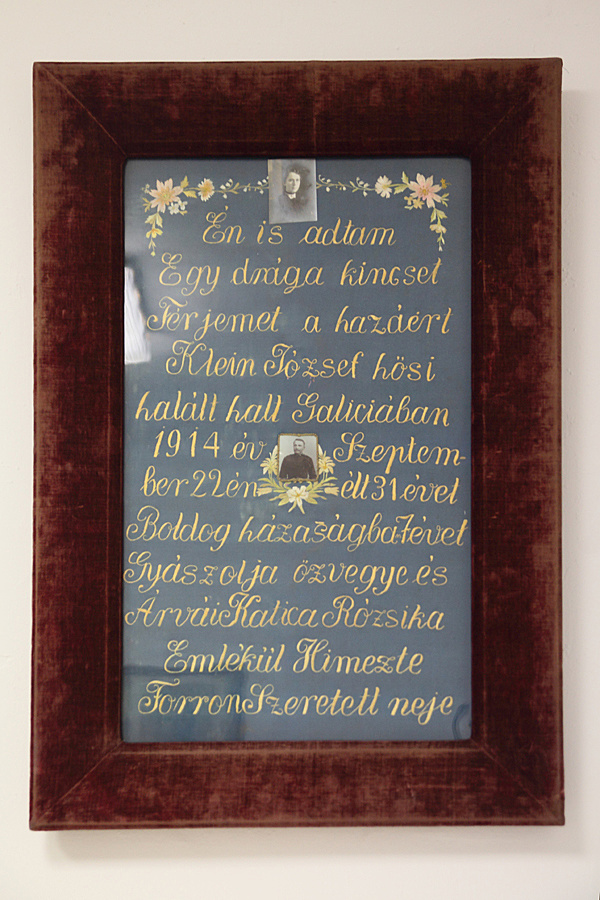 Én is adtam
Egy drága kincset
Férjemet a hazáért
Klein József hősi
halált halt Galiciában
1914 év Szeptem-
ber 22 én élt 31 évet
Boldog házaságba 7 évet
Gyászolja özvegye és
Árvái Katica Rózsika
Emlékül Himezte
Forron Szeretett neje